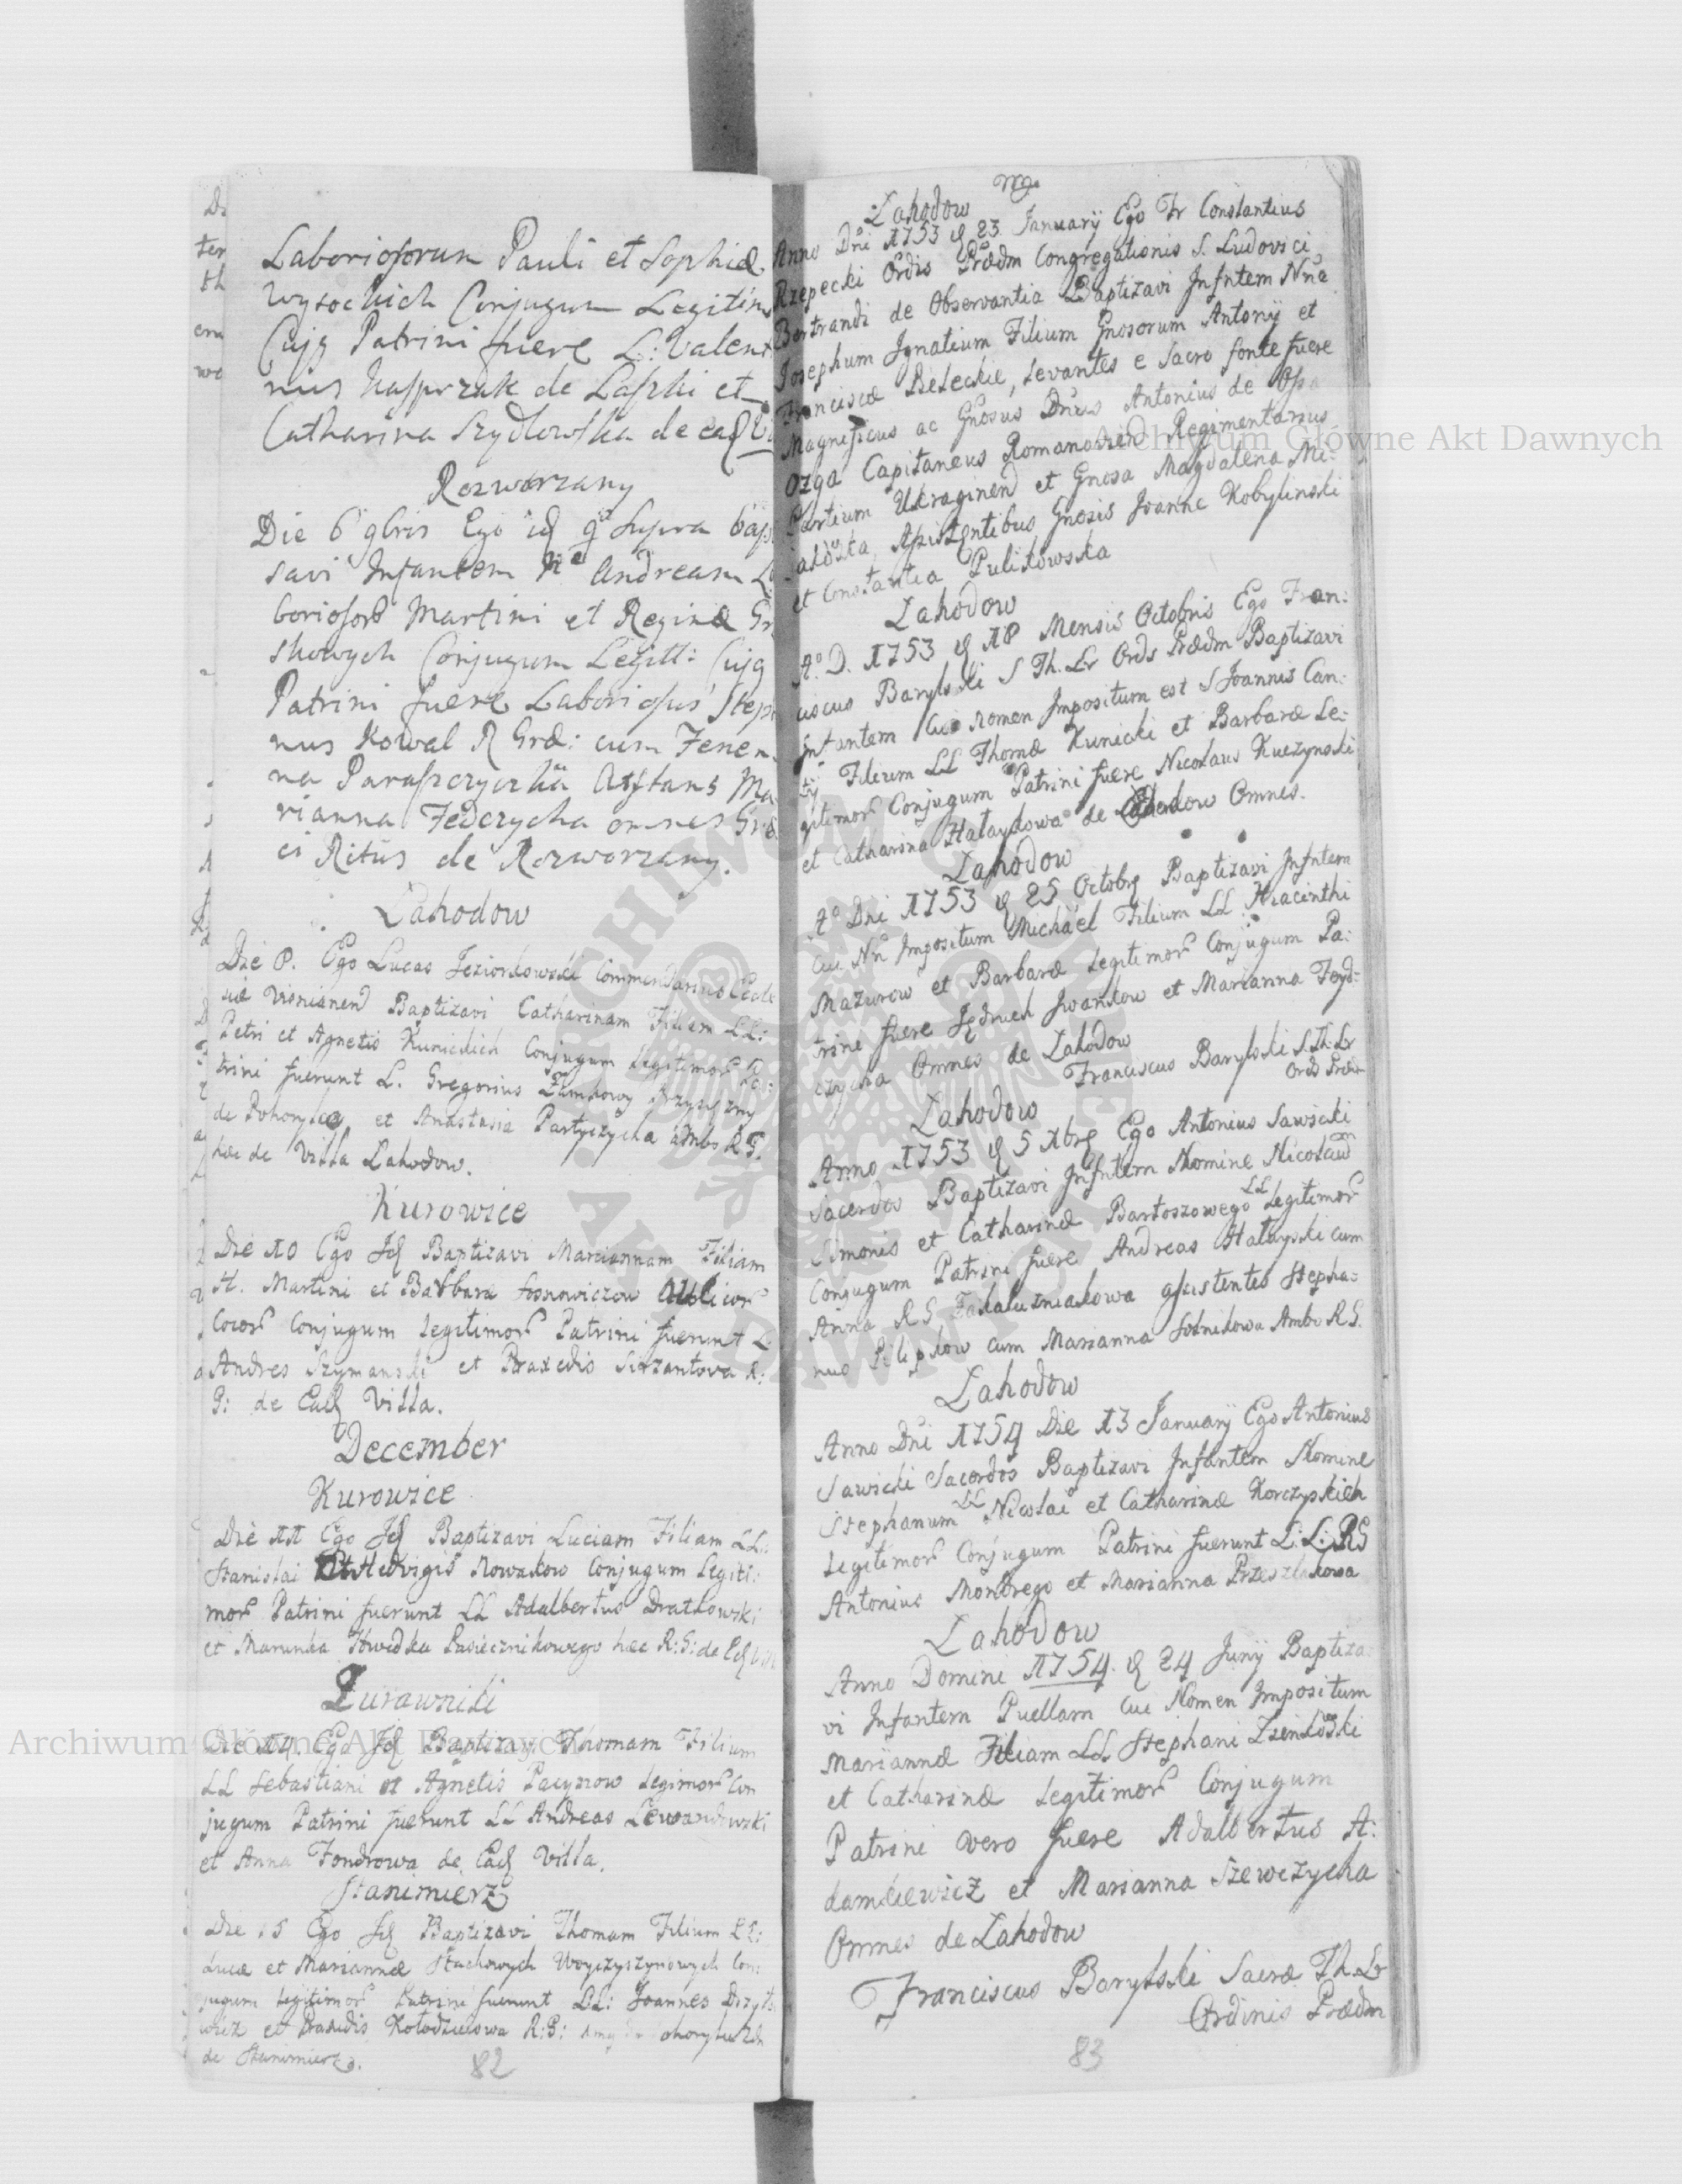 Laboriosorum Pauli et Sophiæ
Wysockich Conjugum Legitim
Cujq Patrini fuere L: Valent
nus Kasprzak de Laszki et
Catharina Szydlowska de eaq
Rozworzany
Die 6 9bris Ego iq supra bap
savi Infantem Andream La
boriosor Martini et Reginæ
skowych Conjugum Legitt: Cujq
Patrini fuere Laboriosus Step
nus Kowal R Græ: cum Fenen
na Astans Ma
rianna Federycha omnes Græ
ci Ritus de Rozworzany.
Lahodow
Die 8. Ego Lucas Jeziorkowski Commendarius Eccle
siæ Visnianen Baptizavi Catharinam Filiam LL:
Petri et Agnetis Kunickich Conjugum Legitimor Pa:
trini fuerunt L. Gregorius
de et Anastasia Partyczycha ambo R G.
hæc de Villa Lahodow.
Kurowice
Die 10 Ego Jq Baptizavi Mariannam Filiam
H. Martini et Barbara Sosnowiczow
Cocor Conjugum Legitimor Patrini fuerunt L
Andres Szymanski et Praxedis Sierzantowa R:
G: de Eaq Villa.
December
Kurowice
Die 11 Ego Jq Baptizavi Luciam Filiam LL:
Stanislai Et Hedvigis Nowakow Conjugum Legiti:
mor Patrini fuerunt LL Adalbertus Dratkowski
et Marunka Hwedka Pasiecznikowego hæc R: G: de Eq
Zurawniki
Die 14. Ego Jq Baptizavi Thomam Filium
LL Sebastiani et Agnetis Legimor Con
jugum Patrini fuerunt LL Andreas Lewandowski
et Anna Fondrowa de Eaq Villa.
Stanimierz
Die 15 Ego Jq Baptizavi Thomam Filium LL:
Lucæ et Mariannæ Stachowych Woyczyszynowych Con:
jugum Legitimor Patrini fuerunt LL: Joannes
et Praxedis Kołodziiowa R: G:
de Stanimierz.
82
Lahodow
Anno Dni 1753 q 23 January Ego Fr Constantius
Rzepecki Ordis Prædm Congregationis S. Ludovici
Bertrandi de Observantia Baptizavi Infntem Nne
Josephum Ignatium Filium Gnosorum Antonÿ et
Franciscæ Beleckie, Levantes e Sacro fonte fuere
Magnificus ac Gnosus Dnus Antonius de
Ozga Capitaneus Romanovien Regimentarius
Partium Ukraginen et Gnosa Magdalena Mi:
Assistentibus Gnosis Joanne Kobylinski
et Constantia Pulikowska
Lahodow
Ao D. 1753 q 18 Mensis Octobris Ego Fran:
ciscus Barylski S Th. Lr Ords Prædm Baptizavi
Infantem Cui Nomen Impositum est S Joannis Can:
tÿ Filium LL Thomæ Kunicki et Barbaræ Le:
gitimor Conjugum Patrini fuere Nicolaus Kuczynski
et Catharina Hałaykowa de Lahodow Omnes.
Lahodow
Ao Dni 1753 q 25 Octobq Baptizavi Infntem
Cui Nn Impositum Michäel Filium LL Hiacinthi
Mazurow et Barbaræ Legitimor Conjugum Pa:
trini fuere Jędruch Iwankow et Marianna Feyd:
czycha Omnes de Lahodow
Franciscus Barylski S. Th: Lr
Ords Prædm
Lahodow
Anno 1753 q 5 Xbrq Ego Antonius Sawicki
Sacerdos Baptizavi Infntem Nomine Nicolaum
Simonis et Catharinæ Bartoszowego LL Legitimor
Conjugum Patrini fuere Andreas Hałayski cum
Anna R G Zakałuzniakowa assistentes Stepha:
nus Pilipkow cum Marianna Sotnikowa Ambo R G.
Lahodow
Anno Dni 1754 Die 13 January Ego Antonius
Sawicki Sacerdos Baptizavi Infantem Nomine
Stephanum LL Nicolai et Catharinæ Korczyskich
Legitimor Conjugum Patrini fuerunt L: L: RG
Antonius Mondrego et Marianna Przeszlakowa
Lahodow
Anno Domini 1754. q 24 Junÿ Baptiza
vi Infantem Puellam Cui Nomen Impositum
Mariannæ Filiam LL Stephani
et Catharinæ Legitimor Conjugum
Patrini vero fuere Adalbertus A:
damkiewicz et Marianna Szewczycha
Omnes de Lahodow
Franciscus Barylski Sacræ Th. Lr
Ordinis Prædm
83
Archiwum Główne Akt Dawnych
Archiwum Główne Akt Dawnych
ARCHIWUM GŁÓWNE AKT DAWNYCH